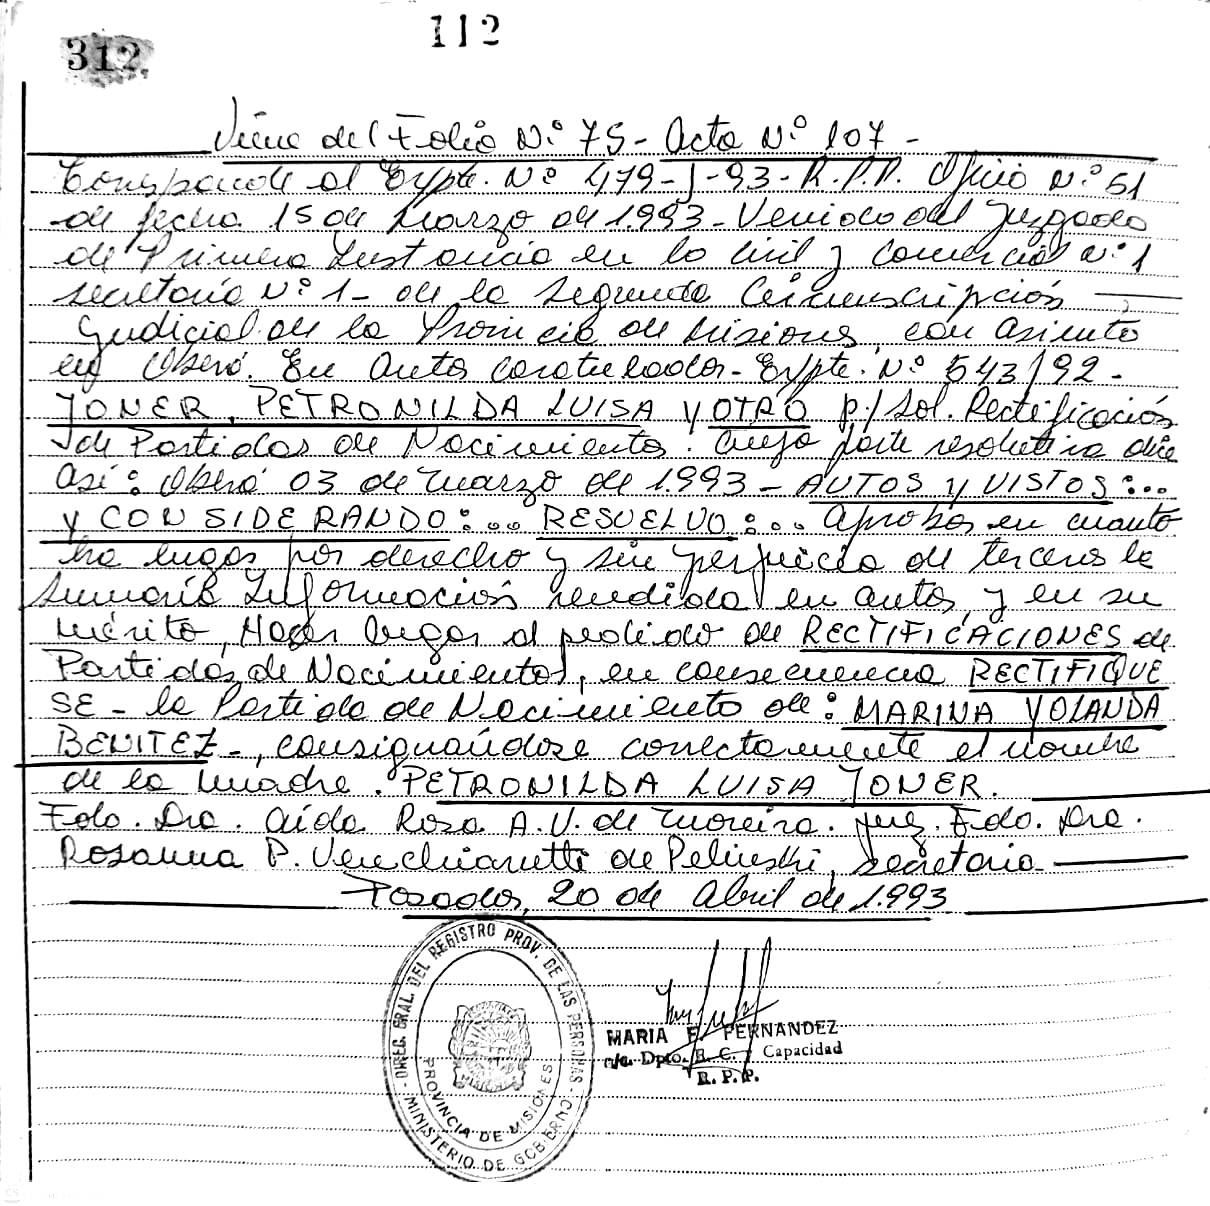 112
312
Viene del Folio N.° 75 - Acta N.° 107 -
Corresponde al Expte. N° 479-J-93-R.P.P. Oficio N.° 51
de fecha 15 de Marzo de 1.993 - Venido del Juzgado
de Primera Instancia en lo Civil y Comercial N.° 1
secretaría N.° 1 - de la Segunda Circunscripción
Judicial de la Provincia de Misiones, con asiento
en Oberá. En Autos caratulados - Expte. N.° 543/92 -
JONER, PETRONILDA LUISA Y OTRO p/ Sol. Rectificación
de Partidas de Nacimiento. Cuya parte resolutiva dice
Así: Oberá 03 de Marzo de 1.993 - AUTOS y VISTOS:...
Y CONSIDERANDO:... RESUELVO:... Aprobar en cuanto
ha lugar por derecho y sin perjuicio de terceros la
Sumaria Información rendida en autos, y en su
Mérito, Hacer lugar al pedido de RECTIFICACIONES de
Partidas de Nacimientos, en consecuencia RECTIFIQUE
SE - la Partida de Nacimiento de: MARINA YOLANDA
BENITEZ -, consignándose correctamente el nombre
de la Madre. PETRONILDA LUISA JONER.
Fdo. Dra. Aída Rosa A.V. de Moreira. Juez. Fdo. Dra.
Rosanna P. Venchiarutti de Pelinski, secretaria
Posadas, 20 de Abril de 1.993
DIREC. GRAL. DEL REGISTRO PROV. DE LAS PERSONAS
MINISTERIO DE GOBIERNO
PROVINCIA DE MISIONES
MARIA E. FERNANDEZ
c/a. Dpto. R. C. y Capacidad
R. P. P.